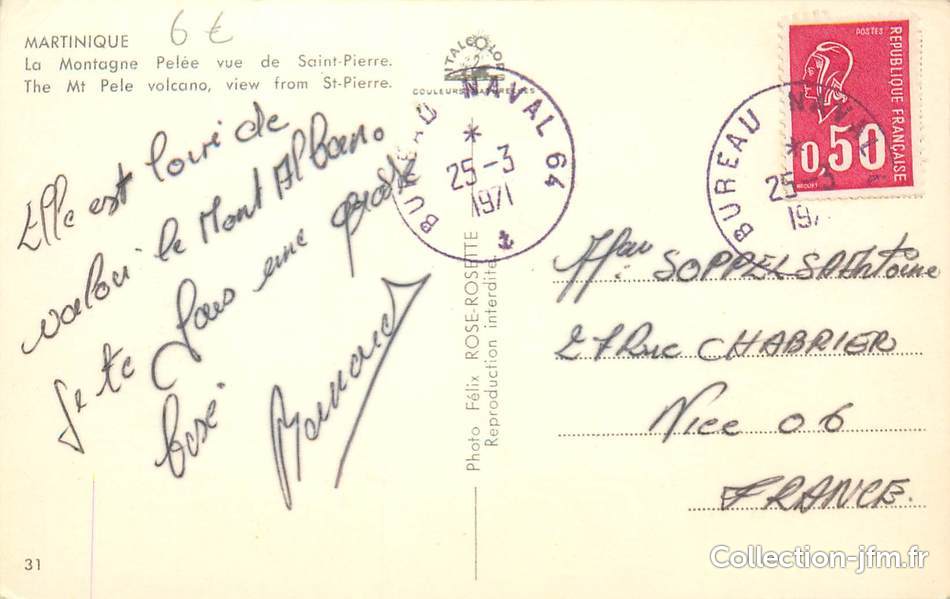 MARTINIQUE
6 €
La Montagne Pelée vue de Saint-Pierre.
The Mt Pele volcano, view from St-Pierre.
INTALCOLOR
COULEURS NATURELLES
Elle est loin de
valoir le Mont Alban.
Je te fais une grosse
bise
BUREAU NAVAL 64
25-3
1971
Photo Félix ROSE-ROSETTE
Reproduction interdite.
POSTES
REPUBLIQUE FRANÇAISE
0,50
BUREAU NAVAL
25-3
197
SOPPELSA Antoine
27 Rue CHABRIER
Nice 06
FRANCE.
31
Collection-jfm.fr